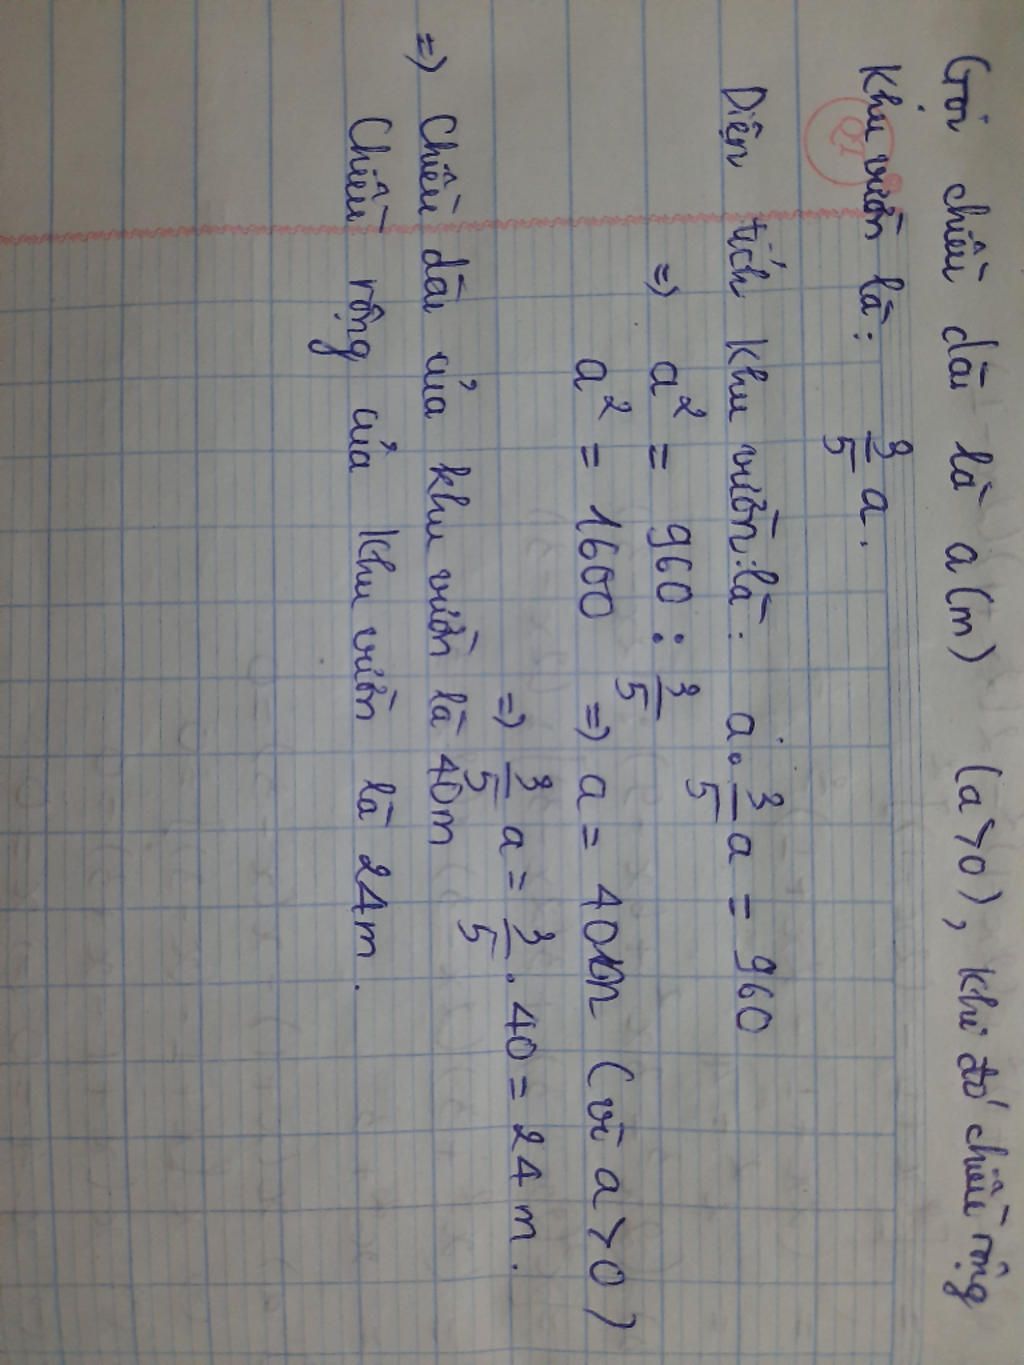 Gọi chiều dài là a (m) (a > 0), khi đó chiều rộng
khu vườn là: 3/5 a.
Diện tích khu vườn là: a . 3/5 a = 960
=> a² = 960 : 3/5
a² = 1600 => a = 40m (vì a > 0)
=> 3/5 a = 3/5 . 40 = 24 m.
=> Chiều dài của khu vườn là 40m
Chiều rộng của khu vườn là 24m.